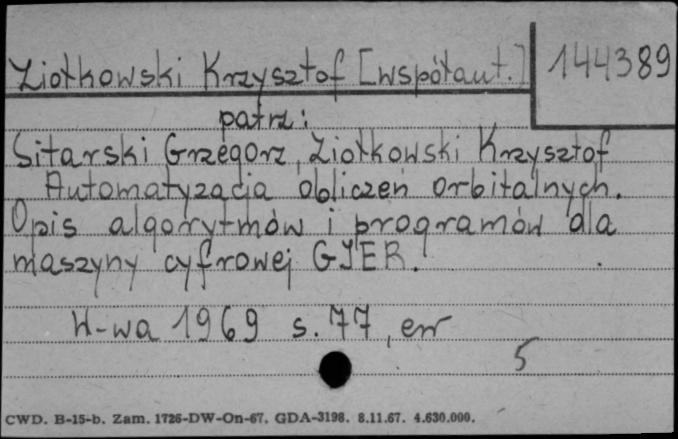 Ziołkowski Krzysztof [współaut.]
144389
patrz:
Sitarski Grzegorz, Ziołkowski Krzysztof
Automatyzacja obliczeń orbitalnych.
Opis algorytmów i programów dla
maszyny cyfrowej GIER.
W-wa 1969 s. 77, err
5
CWD. B-15-b. Zam. 1726-DW-On-67. GDA-3198. 8.11.67. 4.630.000.